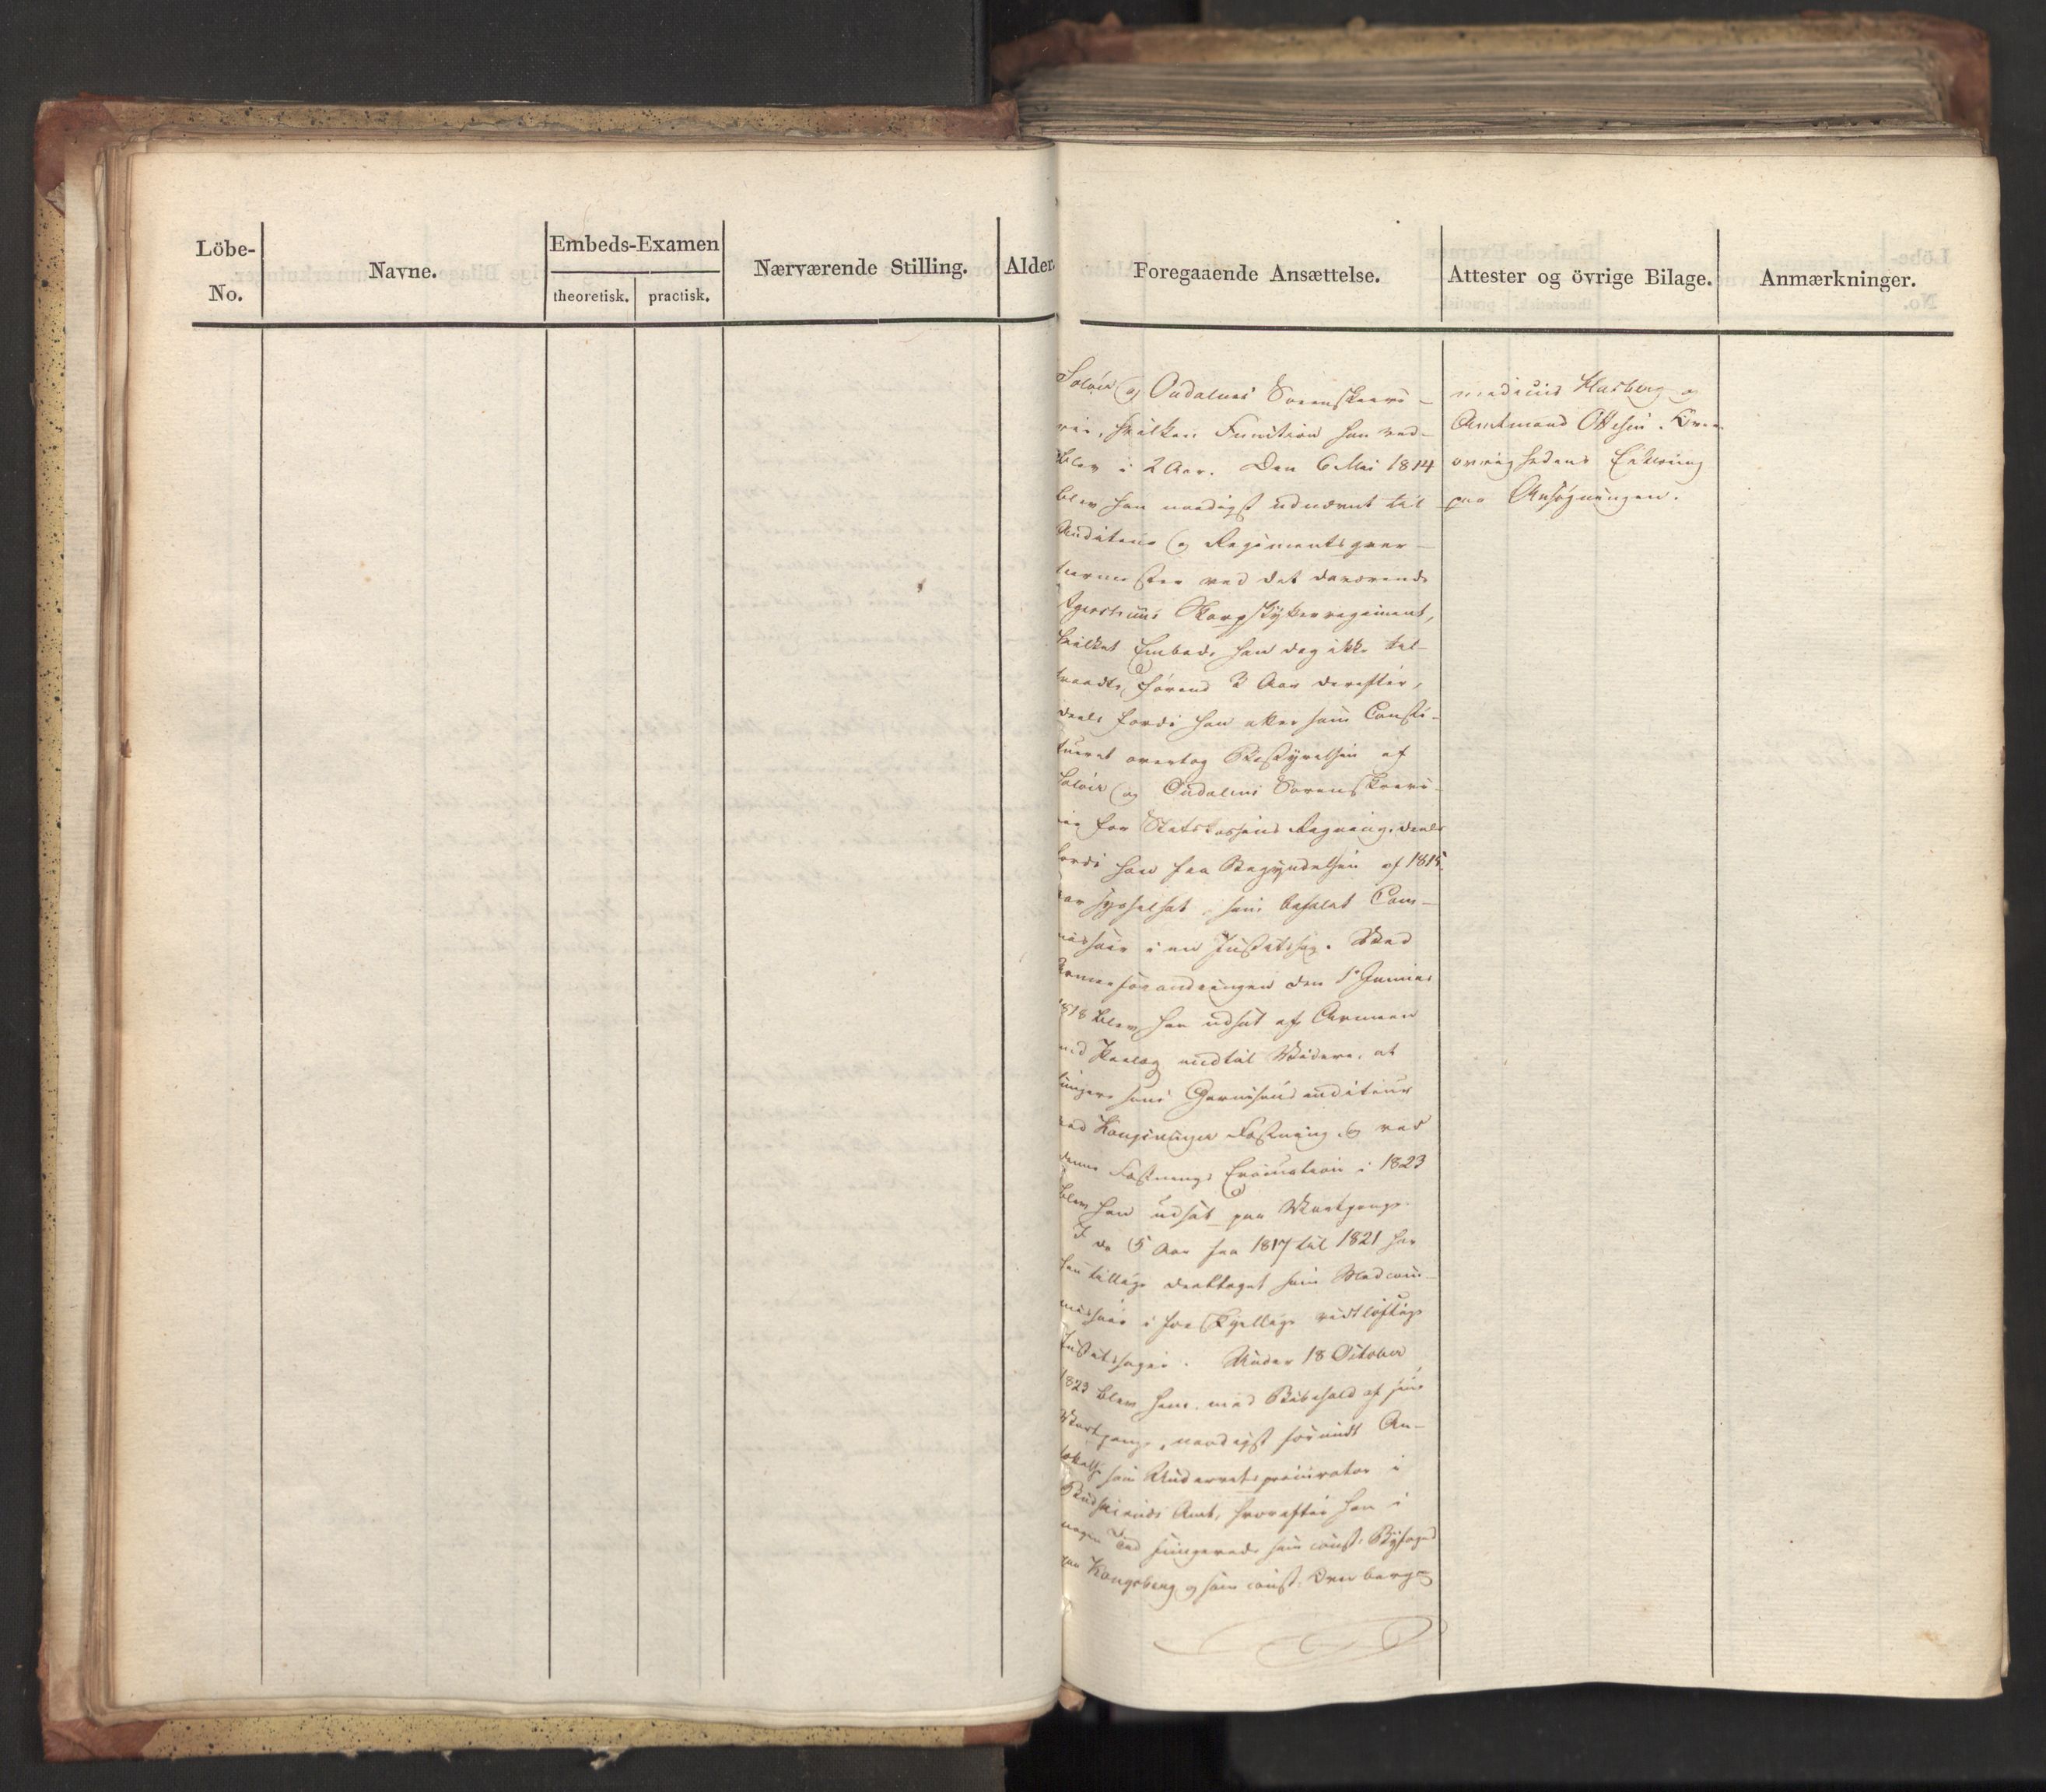 Löbe-
No.
Navne.
Embeds-Examen
theoretisk.
practisk.
Nærværende Stilling.
Alder.
Foregaaende Ansættelse.
Attester og övrige Bilage.
Anmærkninger.
Soløer og Oudalens Sorenskrive-
rie, hvilken Function han ved-
blev i 2 Aar. Den 6 Mai 1814
blev han naadigst udnævnt til
Auditeur og Regimentsqvar-
teermester ved det daværende
Agershuus Skarpskytterregiment,
hvilket Embede han dog ikke til-
traadte førend 3 Aar derefter,
deels fordi han atter som Consti-
tueret overtog Bestyrelsen af
Soløer og Oudalens Sorenskrive-
rie for Statskassens Regning, deels
fordi han fra Begyndelsen af 1815
var sysselsat som befalet Com-
missair i en Justitssag. Ved
Armeeforandringen den 1 Junuar
1818 blev han udsat af Armeen
med Paalæg indtil Videre, at
fungere som Garnisonsauditeur
ved Kongsvinger Fæstning, og ved
denne Fæstnings Evacuation i 1823
blev han udsat paa Vartpenge.
I de 5 Aar fra 1817 til 1821 har
han tillige deeltaget som Medcom-
missair i forskjellige vidtløftige
Justitssager. Under 18 October
1823 blev ham, med Bibehold af sine
Vartpenge, naadigst forundt An-
sættelse som Underretsprocurator i
Budskeruds Amt, hvorefter han i
nogen Tid fungerede som const. Byfoged
paa Kongsberg og som const. Overberga
medicus Klasberg og
Amtmand Ottesen. Over
øvrighedens Erklæring
paa Ansøgningen.